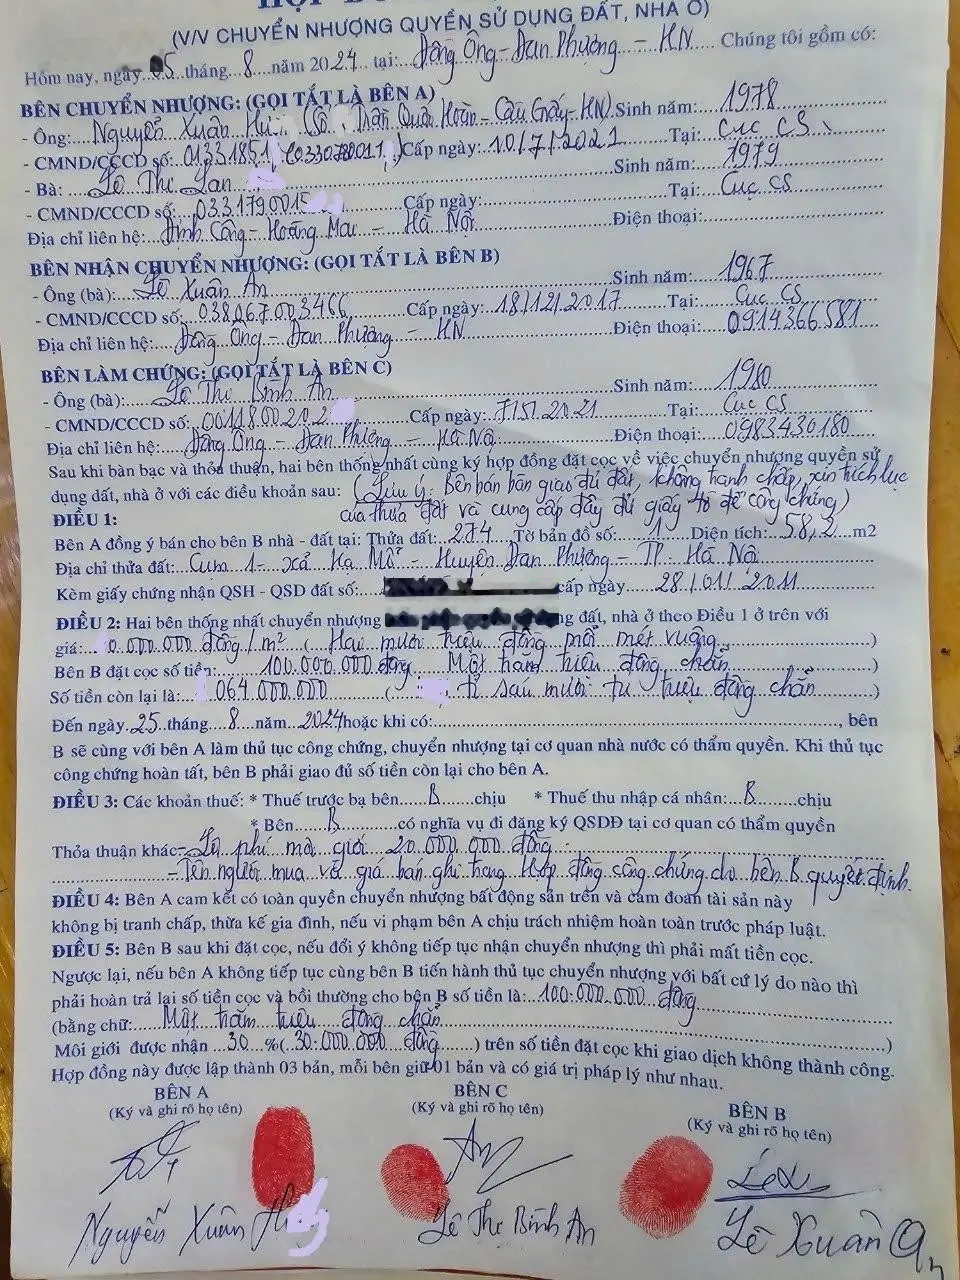 (V/V CHUYỂN NHƯỢNG QUYỀN SỬ DỤNG ĐẤT, NHÀ Ở)
Hôm nay, ngày 05 tháng 8 năm 2024 tại: Đông Ông - Đan Phượng - HN Chúng tôi gồm có:
BÊN CHUYỂN NHƯỢNG: (GỌI TẮT LÀ BÊN A)
- Ông: Nguyễn Xuân (Số Trần Quốc Hoàn - Cầu Giấy - HN) Sinh năm: 1978
- CMND/CCCD số: Cấp ngày: 10/7/2021 Tại: Cục CS
- Bà: Lê Thị Lan Sinh năm: 1979
- CMND/CCCD số: 0331790015 Cấp ngày: Tại: Cục CS
Địa chỉ liên hệ: Định Công - Hoàng Mai - Hà Nội Điện thoại:
BÊN NHẬN CHUYỂN NHƯỢNG: (GỌI TẮT LÀ BÊN B)
- Ông (bà): Lê Xuân An Sinh năm: 1967
- CMND/CCCD số: 038067003466 Cấp ngày: 18/12/2017 Tại: Cục CS
Địa chỉ liên hệ: Đông Ông - Đan Phượng - HN Điện thoại: 0914366581
BÊN LÀM CHỨNG: (GỌI TẮT LÀ BÊN C)
- Ông (bà): Lê Thị Bình An Sinh năm: 1980
- CMND/CCCD số: 001180020 Cấp ngày: 7/5/2021 Tại: Cục CS
Địa chỉ liên hệ: Đông Ông - Đan Phượng - Hà Nội Điện thoại: 0983430180
Sau khi bàn bạc và thỏa thuận, hai bên thống nhất cùng ký hợp đồng đặt cọc về việc chuyển nhượng quyền sử
dụng đất, nhà ở với các điều khoản sau: (Lưu ý: Bên bán bàn giao đủ đất, không tranh chấp, xin trích lục
của thửa đất và cung cấp đầy đủ giấy tờ để công chứng)
ĐIỀU 1:
Bên A đồng ý bán cho bên B nhà - đất tại: Thửa đất: 274 Tờ bản đồ số: 1 Diện tích: 58,2 m2
Địa chỉ thửa đất: Cụm 1 - xã Hạ Mỗ - Huyện Đan Phượng - TP. Hà Nội
Kèm giấy chứng nhận QSH - QSD đất số: cấp ngày 28/01/2011
ĐIỀU 2: Hai bên thống nhất chuyển nhượng đất, nhà ở theo Điều 1 ở trên với
giá: 0.000.000 đồng/m² (Hai mươi triệu đồng mỗi mét vuông)
Bên B đặt cọc số tiền: 100.000.000 đồng Một trăm triệu đồng chẵn)
Số tiền còn lại là: 064.000.000 ( tỉ sáu mươi tư triệu đồng chẵn)
Đến ngày 25 tháng 8 năm 2024 hoặc khi có: , bên
B sẽ cùng với bên A làm thủ tục công chứng, chuyển nhượng tại cơ quan nhà nước có thẩm quyền. Khi thủ tục
công chứng hoàn tất, bên B phải giao đủ số tiền còn lại cho bên A.
ĐIỀU 3: Các khoản thuế: * Thuế trước bạ bên B chịu * Thuế thu nhập cá nhân: B chịu
* Bên B có nghĩa vụ đi đăng ký QSDĐ tại cơ quan có thẩm quyền
Thỏa thuận khác: - Lệ phí môi giới 20.000.000 đồng
- Tên người mua và giá bán ghi trong Hợp đồng công chứng do bên B quyết định.
ĐIỀU 4: Bên A cam kết có toàn quyền chuyển nhượng bất động sản trên và cam đoan tài sản này
không bị tranh chấp, thừa kế gia đình, nếu vi phạm bên A chịu trách nhiệm hoàn toàn trước pháp luật.
ĐIỀU 5: Bên B sau khi đặt cọc, nếu đổi ý không tiếp tục nhận chuyển nhượng thì phải mất tiền cọc.
Ngược lại, nếu bên A không tiếp tục cùng bên B tiến hành thủ tục chuyển nhượng với bất cứ lý do nào thì
phải hoàn trả lại số tiền cọc và bồi thường cho bên B số tiền là: 100.000.000 đồng
(bằng chữ: Một trăm triệu đồng chẵn)
Môi giới được nhận 30 % (30.000.000 đồng) trên số tiền đặt cọc khi giao dịch không thành công.
Hợp đồng này được lập thành 03 bản, mỗi bên giữ 01 bản và có giá trị pháp lý như nhau.
BÊN A BÊN C BÊN B
(Ký và ghi rõ họ tên) (Ký và ghi rõ họ tên) (Ký và ghi rõ họ tên)
Nguyễn Xuân Lê Thị Bình An Lê Xuân An